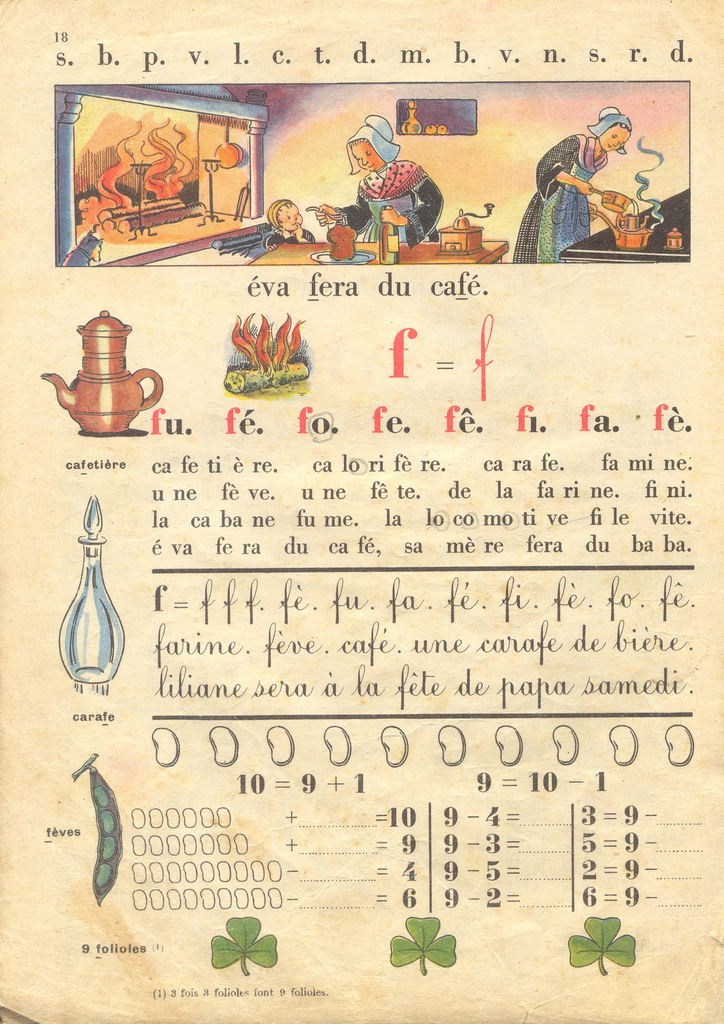 18
s. b. p. v. l. c. t. d. m. b. v. n. s. r. d.
éva fera du café.
f = f
fu. fé. fo. fe. fê. fi. fa. fè.
cafetière
ca fe ti è re. ca lo ri fè re. ca ra fe. fa mi ne.
u ne fè ve. u ne fê te. de la fa ri ne. fi ni.
la ca ba ne fu me. la lo co mo ti ve fi le vite.
é va fe ra du ca fé, sa mè re fera du ba ba.
f = f f f. fè. fu. fa. fé. fi. fè. fo. fê.
farine. fève. café. une carafe de bière.
liliane sera à la fête de papa samedi.
carafe
10 = 9 + 1 9 = 10 - 1
fèves
+ ............ = 10 9 - 4 = ............ 3 = 9 - ............
+ ............ = 9 9 - 3 = ............ 5 = 9 - ............
- ............ = 4 9 - 5 = ............ 2 = 9 - ............
- ............ = 6 9 - 2 = ............ 6 = 9 - ............
9 folioles (1)
(1) 3 fois 3 folioles font 9 folioles.